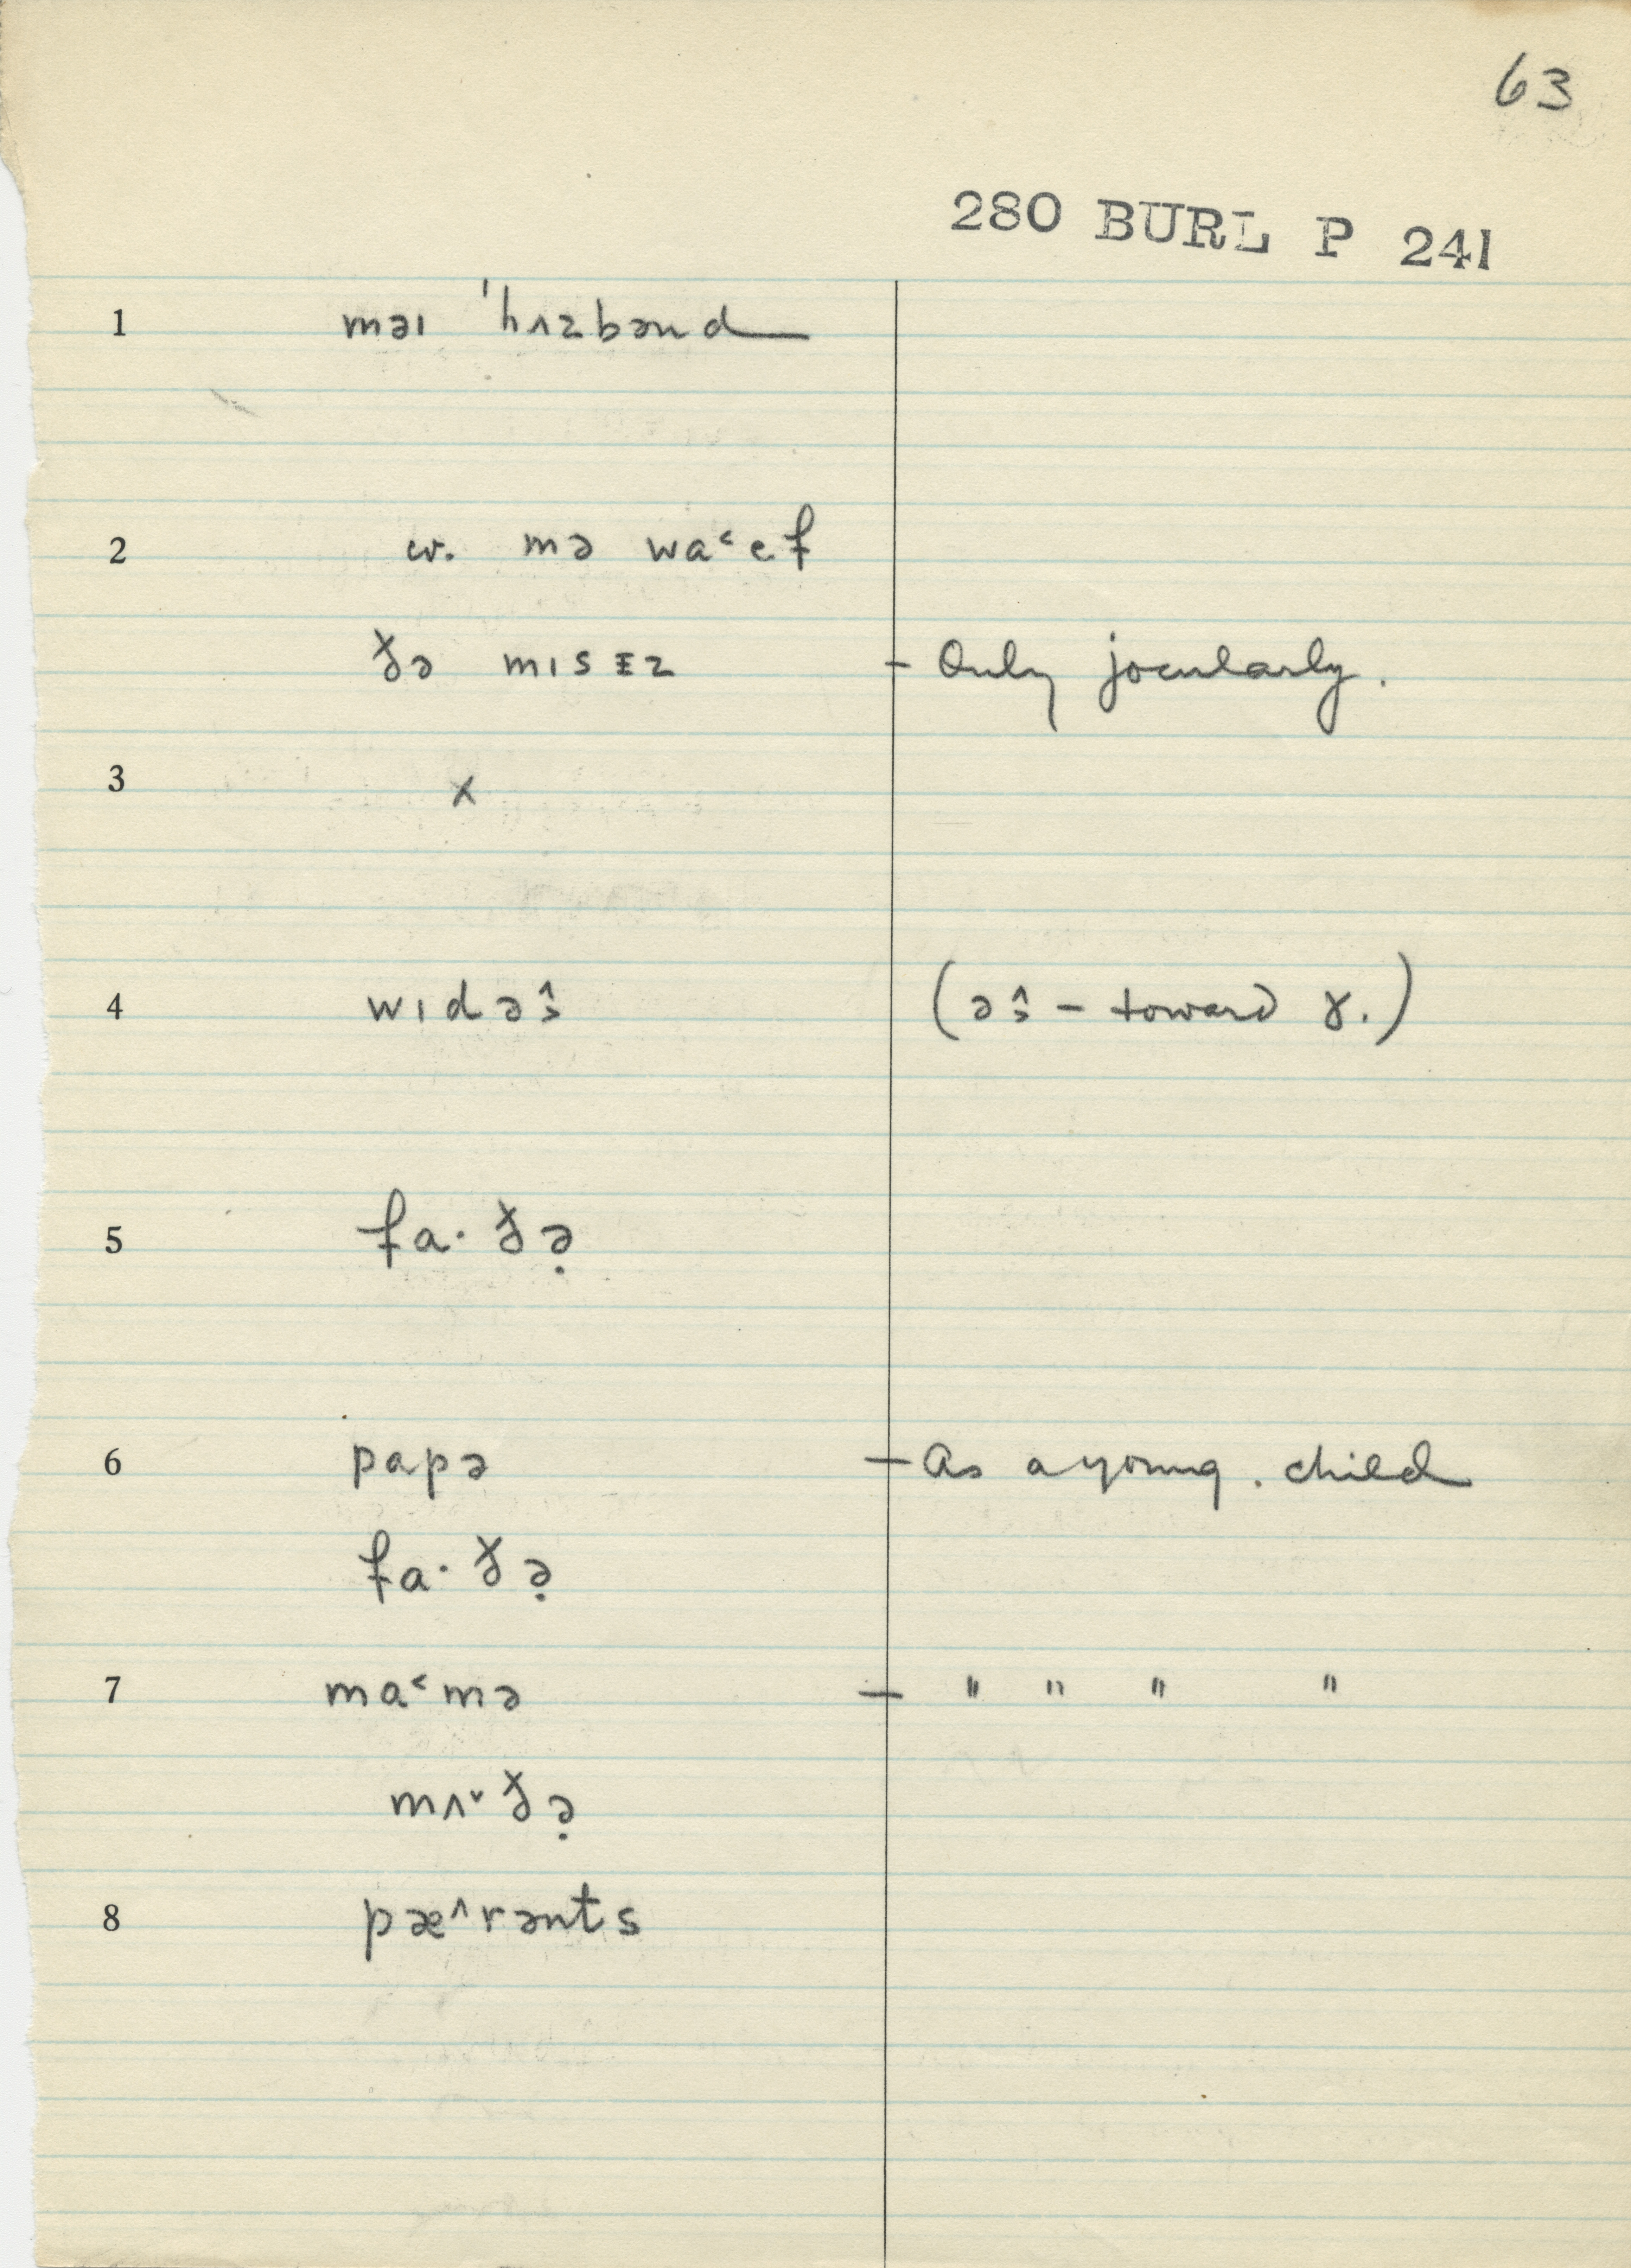 63
280 BURL P 241
1 məɪ 'hʌzbənd
2 cv. mə wa˂ef
ðə mɪsɪz – Only jocularly.
3 x
4 wɪdəŝ (əŝ – toward ɤ.)
5 fa· ðə̣
6 papə – As a young . child
fa· ðə̣
7 ma˂mə – " " " "
mʌ˅ðə̣
8 pæ^rənts